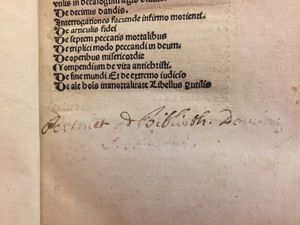 De decimis dandis.
Interrogationes faciende infirmo morienti.
De articulis fidei
De septem peccatis mortalibus
De triplici modo peccandi in deum.
De operibus misericordie
Compendium de vita antichristi.
De fine mundi Et de extremo iudicio
De aie hois immortalitate Libellus putilis
Pertinet ad Biblioth.